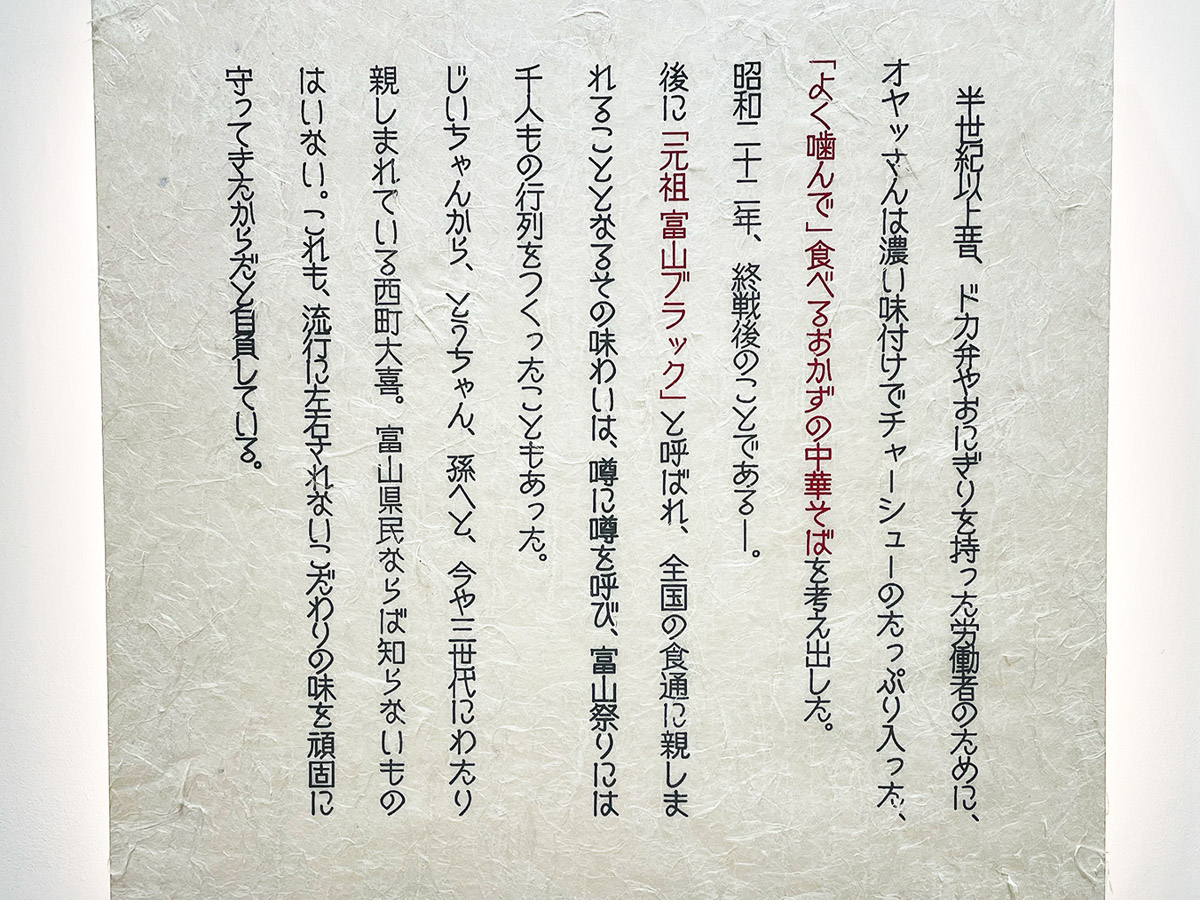 半世紀以上昔、ドカ弁やおにぎりを持った労働者のために、
オヤッさんは濃い味付けでチャーシューのたっぷり入った、
「よく噛んで」食べるおかずの中華そばを考え出した。
昭和二十二年、終戦後のことである―。
後に「元祖 富山ブラック」と呼ばれ、全国の食通に親しま
れることとなるその味わいは、噂に噂を呼び、富山祭りには
千人もの行列をつくったこともあった。
じいちゃんから、とうちゃん、孫へと、今や三世代にわたり
親しまれている西町大喜。富山県民ならば知らないもの
はいない。これも、流行に左右されないこだわりの味を頑固に
守ってきたからだと自負している。